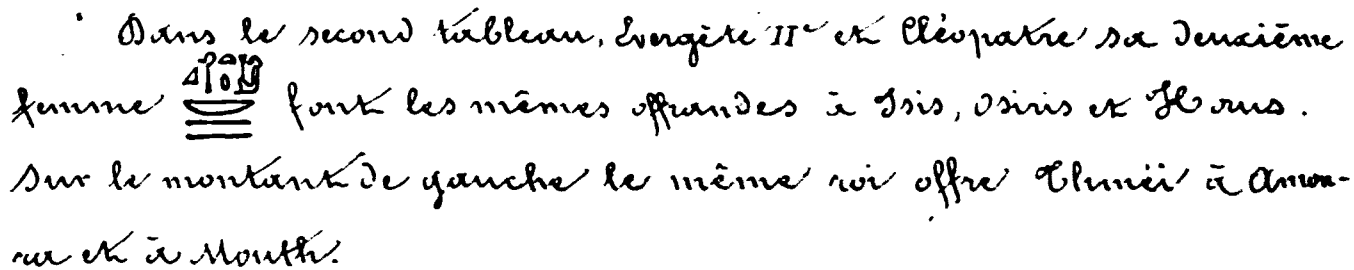 Dans le second tableau, Evergète II<sup>e</sup> et Cléopatre sa deuxième
femme font les mêmes offrandes à Isis, Osiris et Horus.
Sur le montant de gauche le même roi offre Thméi à Amon-
ra et à Mouth.